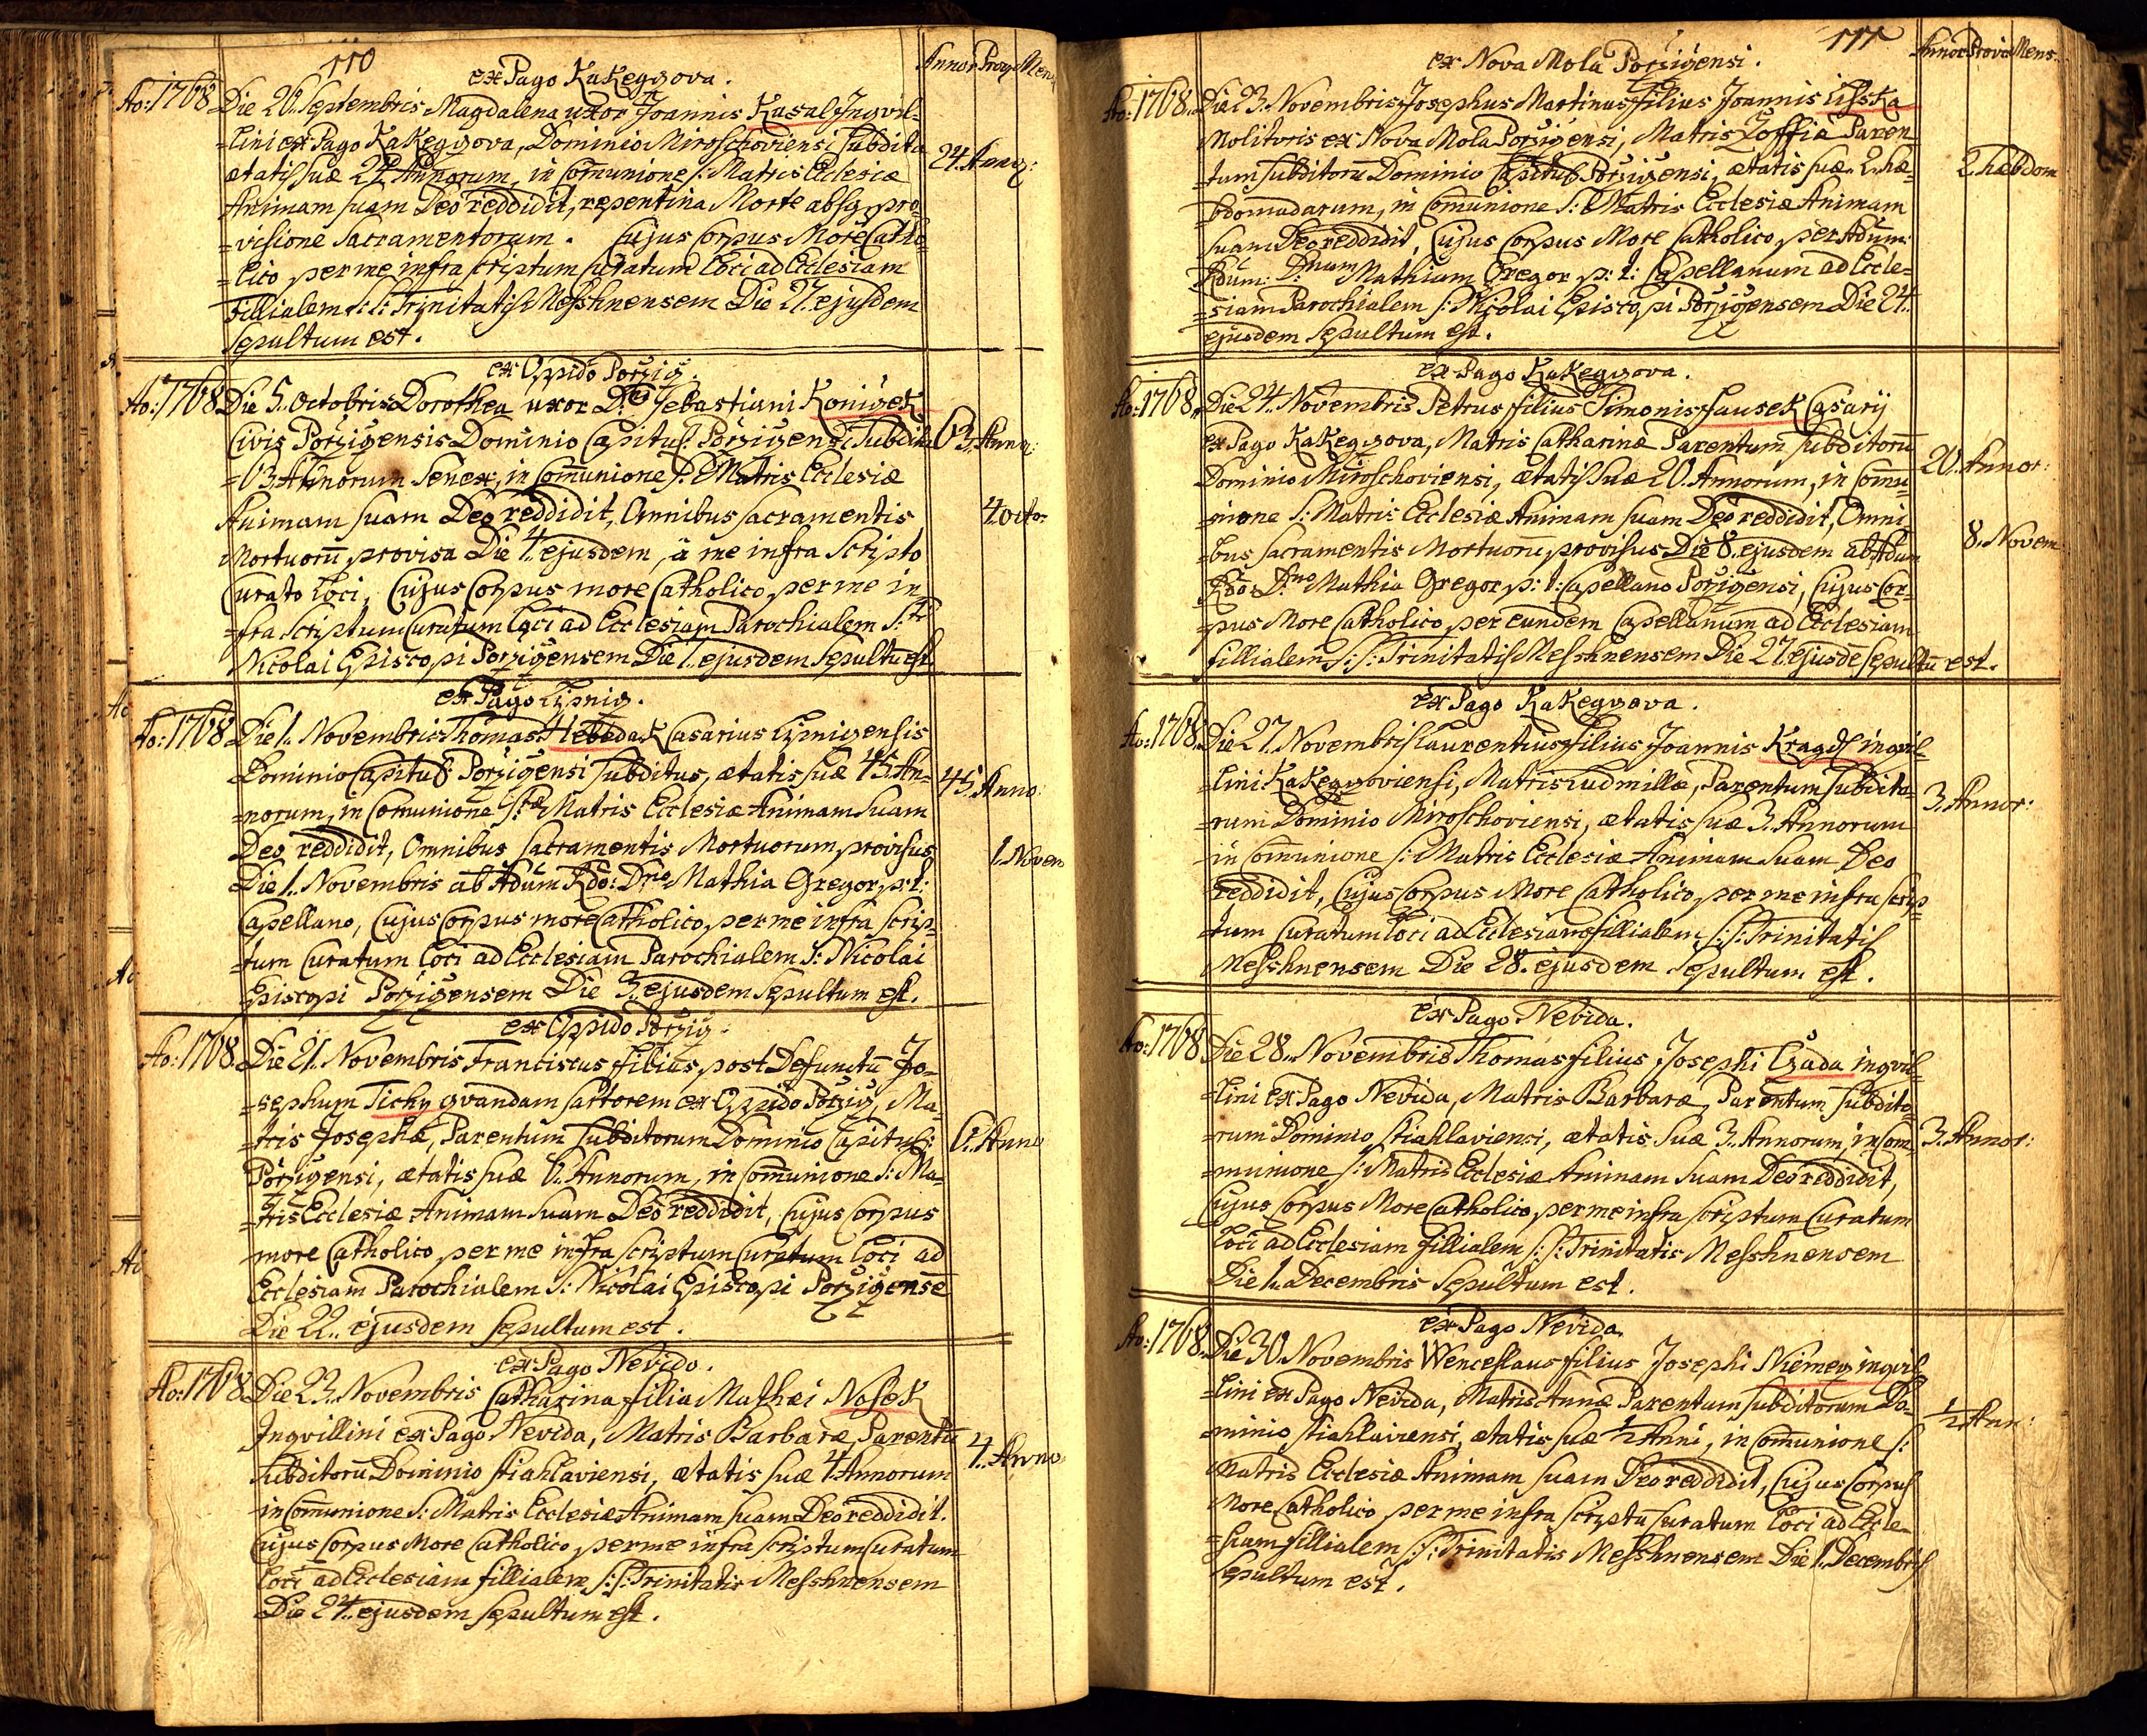 110
Annor Prov Mens
ex Pago Kakeggova.
Ao: 1768 Die 26. Septembris Magdalena uxor Joannis Kasal Ingvil-
=lini ex Pago Kakeggova, Dominio Miroschoviensi subdita
ætatis suæ 24 Annorum, in Com̄unione S: Matris Ecclesiæ 24. Annor:
Animam suam Deo reddidit, repentina Morte absq pro-
=visione Sacramentorum. Cujus Corpus More Catho-
=lico per me infra scriptum Curatum Loci ad Ecclesiam
Fillialem S: S: Trinitatis Messhnensem Die 27. ejusdem
Sepultum est.
ex Oppido Porzig.
Ao: 1768 Die 5. Octobris Dorothea uxor D. Sebastiani Konigek
Civis Porzigensis Dominio Capitul: Porzigensi Subdita 63. Anno:
=63 Annorum Senex, in Com̄unione S: Matris Ecclesiæ
Animam suam Deo reddidit, Omnibus Sacramentis 4. octo:
Mortuorū provisa Die 4. ejusdem, à me infra Scripto
Curato Loci, Cujus Corpus more Catholico per me in-
=fra Scriptum Curatum Loci ad Ecclesiam Parochialem S:
Nicolai Episcopi Porzigensem Die ejusdem Sepultū est
ex Pago Lipnig.
Ao: 1768 Die 1. Novembris Thomas Hlebedak Casarius Lipnigensis
Dominio Capitul: Porzigensi Subditus, ætatis suæ 45. An= 45. Anno:
=norum, in Comunione Stæ Matris Ecclesiæ Animam Suam
Deo reddidit, Omnibus Sacramentis Mortuorum provisus 1. Novem
Die 1. Novembris ab Adum Rdo: Dno Mathia Gregor p: t:
Capellano, Cujus Corpus more Catholico per me infra scrip-
=tum Curatum Loci ad Ecclesiam Parochialem S: Nicolai
Episcopi Porzigensem Die 3. ejusdem Sepultum est.
ex Oppido Porzig.
Ao: 1768. Die 21. Novembris Franciscus filius post Defunctū Jo-
=sephum Tichy qvandam sartorem ex Oppido Porzig, Ma-
=tris Josephæ, Parentum Subditorum Dominio Capitul: 6. Anno
Porzigensi, ætatis suæ 6. Annorum, in Comunione S: Ma-
=tris Ecclesiæ Animam suam Deo reddidit, Cujus Corpus
more Catholico per me infra scriptum Curatum Loci ad
Ecclesiam Parochialem S: Nicolai Episcopi Porzigensē
Die 22.. ejusdem sepultum est.
ex Pago Nevido.
Ao: 1768. Die 23. Novembris Catharina filia Mathæi Nosek
Ingvillini ex Pago Nevida, Matris Barbaræ, Parentū 4. Anno:
Subditorū Dominio stiahlaviensi, ætatis suæ 4. Annorum
in Comunione S: Matris Ecclesiæ Animam suam Deo reddidit.
Cujus Corpus More Catholico per me infra scriptum Curatum
Loci ad Ecclesiam fillialem S: S: Trinitatis Messhnensem
Die 24. ejusdem sepultum est.
111
Annor Provi Mens.
ex Nova Mola Porzigensi.
Ao: 1768. Die 23. Novembris Josephus Martinus filius Joannis Lischka
Molitoris ex Nova Mola Porzigensi, Matris Zoffia Paren
=tum subditorū Dominio Capitul: Porzigensi, ætatis suæ 2. hæ- 2. hæbdom
=bdomadarum, in Comunione S: Matris Ecclesiæ Animam
suam Deo reddidit, Cujus Corpus More Catholico, per Adum:
Rdum: Dnum Mathiam Gregor p: t: Capellanum ad Eccle=
=siam Parochialem S: Nicolai Episcopi Porzigensem Die 24.
ejusdem sepultum est.
ex Pago Kakeggova.
Ao: 1768. Die 24. Novembris Petrus filius Simonis Hausek Casarij
ex Pago Kakeggova, Matris Catharinæ Parentum subditorū
Dominio Miroschoviensi, ætatis suæ 20. Annorum, in Comu- 20. Annor:
=nione S: Matris Ecclesiæ Animam suam Deo reddidit, Omni
=bus Sacramentis Mortuorū provisus Die 8. ejusdem ab Adum 8. Novem
Rdo: Dno Mathia Gregor p: t: Capellano Porzigensi, Cujus Cor-
=pus More Catholico per eundem Capellanum ad Ecclesiam
fillialem S: S: Trinitatis Messhnensem Die 27. ejusdē sepultū est.
ex Pago Kakeggova.
Ao: 1768. Die 27. Novembris Laurentius filius Joannis Kragdl ingvil-
=lini Kakeggoviensi, Matris Ludmillæ, Parentum subdito- 3. Annor:
=rum Dominio Miroschoviensi, ætatis suæ 3. Annorum
in Com̄unione S: Matris Ecclesiæ Animam suam Deo
reddidit, Cujus Corpus More Catholico, per me infra scrip-
=tum Curatum Loci ad Ecclesiam fillialem S: S: Trinitatis
Messhnensem Die 28. ejusdem Sepultum est.
ex Pago Nevida.
Ao: 1768 Die 28. Novembris Thomas filius Josephi Czada ingvil-
=lini ex Pago Nevida, Matris Barbaræ, Parentum Subdito-
=rum Dominio stiahlaviensi, ætatis suæ 3. Annorum, in Com= 3. Annor:
=munione S: Matris Ecclesiæ Animam suam Deo reddidit,
Cujus Corpus More Catholico per me infra scriptum Curatum
Loci ad Ecclesiam fillialem S: S: Trinitatis Messhnensem
Die 1. Decembris sepultum est.
ex Pago Nevida.
Ao: 1768. Die 30. Novembris Wenceslaus filius Josephi Niemeg ingvil
=lini ex Pago Nevida, Matris Annæ Parentum Subditorum Do- 1/2 Ann:
=minio stiahlaviensi, ætatis suæ 1/2 Anni, in Com̄unione S:
Matris Ecclesiæ Animam suam Deo reddidit, Cujus Corpus
More Catholico per me infra scriptū Curatum Loci ad Eccle-
=siam fillialem S: S: Trinitatis Messhnensem Die 1. Decembris
Sepultum est.